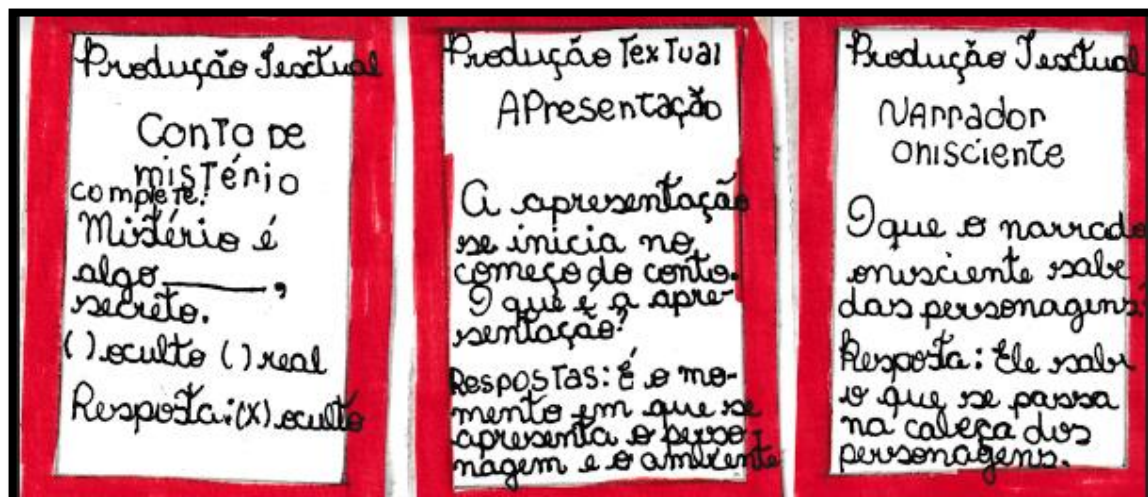 Produção Textual
Conto de
mistério
complete.
Mistério é
algo______,
secreto.
( ) oculto ( ) real
Resposta: (X) oculto
Produção Textual
Apresentação
A apresentação
se inicia no
começo do conto.
O que é a apre-
sentação?
Respostas: É o mo-
mento em que se
apresenta o perso-
nagem e o ambiente
Produção Textual
Narrador
onisciente
O que o narrado
onisciente sabe
das personagens?
Resposta: Ele sabe
o que se passa
na cabeça dos
personagens.